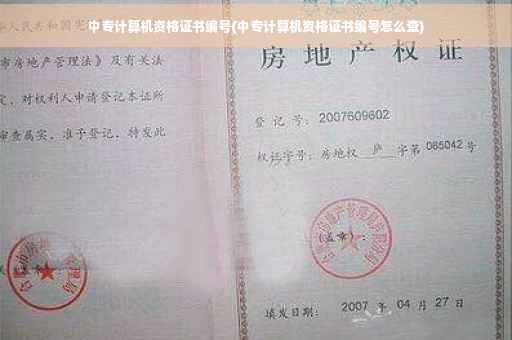 中专计算机资格证书编号(中专计算机资格证书编号怎么查)
人民共和国宪
市房地产管理法》及有关法
定，对权利人申请登记本证所
审查属实，准予登记，特发此
房地产权证
登记号：2007609602
权证字号：房地权 庐 字第 065042 号
(盖章)：
填发日期：2007 年 04 月 27 日